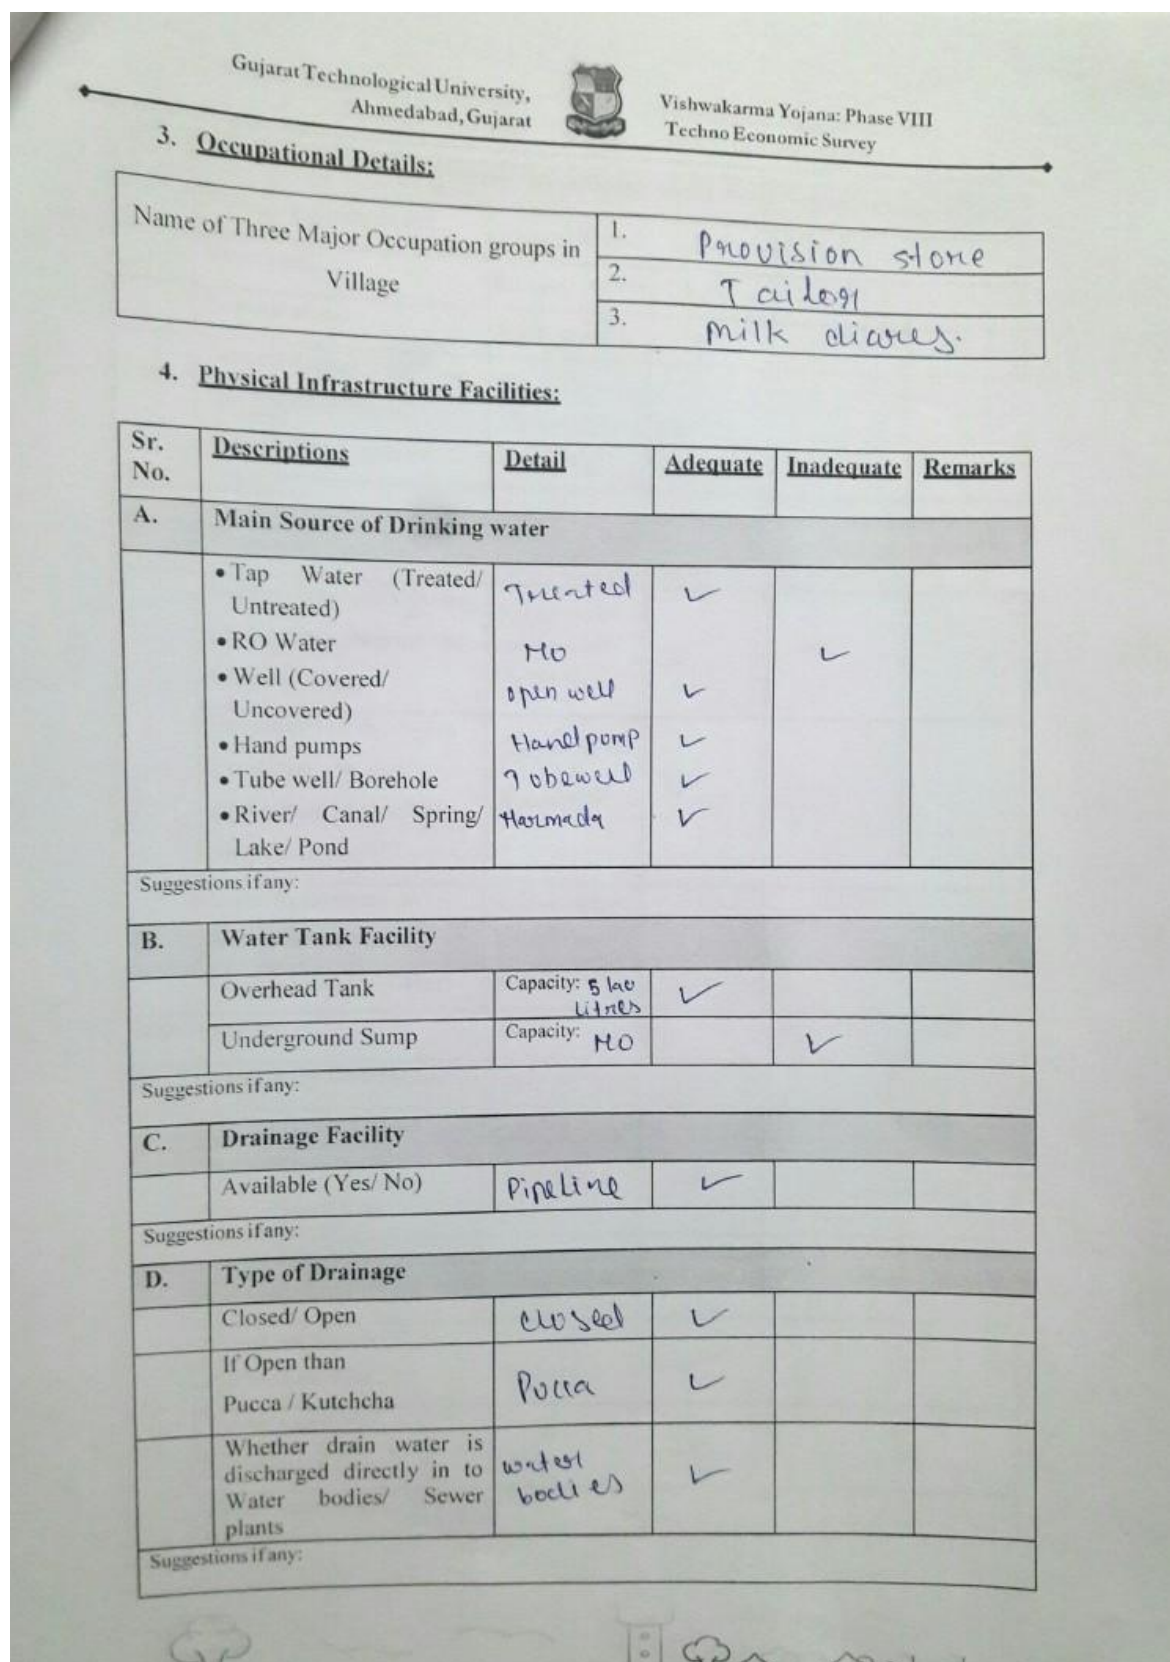 Gujarat Technological University,
Ahmedabad, Gujarat
Vishwakarma Yojana: Phase VIII
Techno Economic Survey
3. Occupational Details:
Name of Three Major Occupation groups in
Village
1. Provision store
2. Tailor
3. Milk diares.
4. Physical Infrastructure Facilities:
Sr. No. Descriptions Detail Adequate Inadequate Remarks
A. Main Source of Drinking water
• Tap Water (Treated/ Untreated) Treated ✓
• RO Water No ✓
• Well (Covered/ Uncovered) open well ✓
• Hand pumps Handpump ✓
• Tube well/ Borehole Tubewell ✓
• River/ Canal/ Spring/ Lake/ Pond Narmada ✓
Suggestions if any:
B. Water Tank Facility
Overhead Tank Capacity: 5 lac litres ✓
Underground Sump Capacity: NO ✓
Suggestions if any:
C. Drainage Facility
Available (Yes/ No) Pipeline ✓
Suggestions if any:
D. Type of Drainage
Closed/ Open closed ✓
If Open than
Pucca / Kutchcha Pucca ✓
Whether drain water is discharged directly in to Water bodies/ Sewer plants water bodies ✓
Suggestions if any: